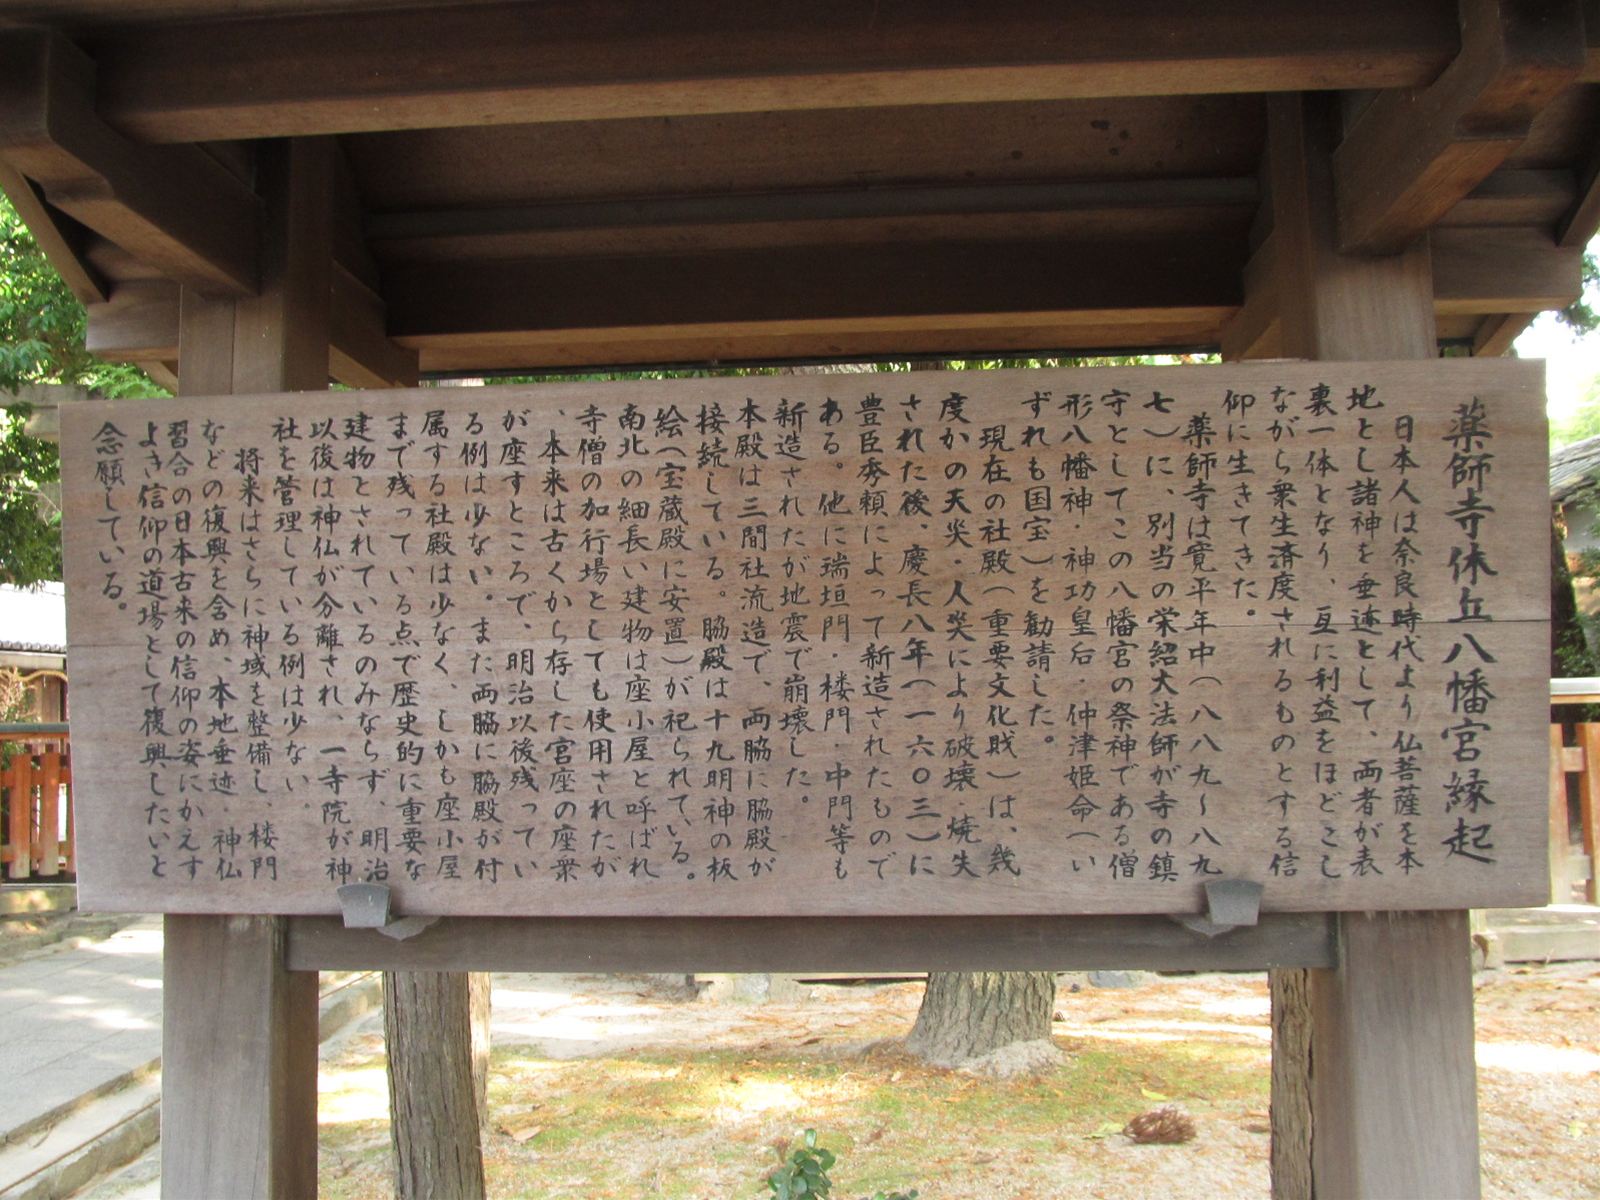 薬師寺休丘八幡宮縁起
日本人は奈良時代より仏菩薩を本
地とし諸神を垂迹として、両者が表
裏一体となり、互に利益をほどこし
ながら衆生済度されるものとする信
仰に生きてきた。
薬師寺は寛平年中(八八九〜八九
七)に、別当の栄紹大法師が寺の鎮
守としてこの八幡宮の祭神である僧
形八幡神・神功皇后・仲津姫命(い
ずれも国宝)を勧請した。
現在の社殿(重要文化財)は、幾
度かの天災・人災により破壊・焼失
された後、慶長八年(一六〇三)に
豊臣秀頼によって新造されたもので
ある。他に瑞垣門・楼門・中門等も
新造されたが地震で崩壊した。
本殿は三間社流造で、両脇に脇殿が
接続している。脇殿は十九明神の板
絵(宝蔵殿に安置)が祀られている。
南北の細長い建物は座小屋と呼ばれ
寺僧の加行場としても使用されたが
、本来は古くから存した宮座の座衆
が座すところで、明治以後残ってい
る例は少ない。また両脇に脇殿が付
属する社殿は少なく、しかも座小屋
まで残っている点で歴史的に重要な
建物とされているのみならず、明治
以後は神仏が分離され、一寺院が神
社を管理している例は少ない。
将来はさらに神域を整備し、楼門
などの復興を含め、本地垂迹・神仏
習合の日本古来の信仰の姿にかえす
よき信仰の道場として復興したいと
念願している。